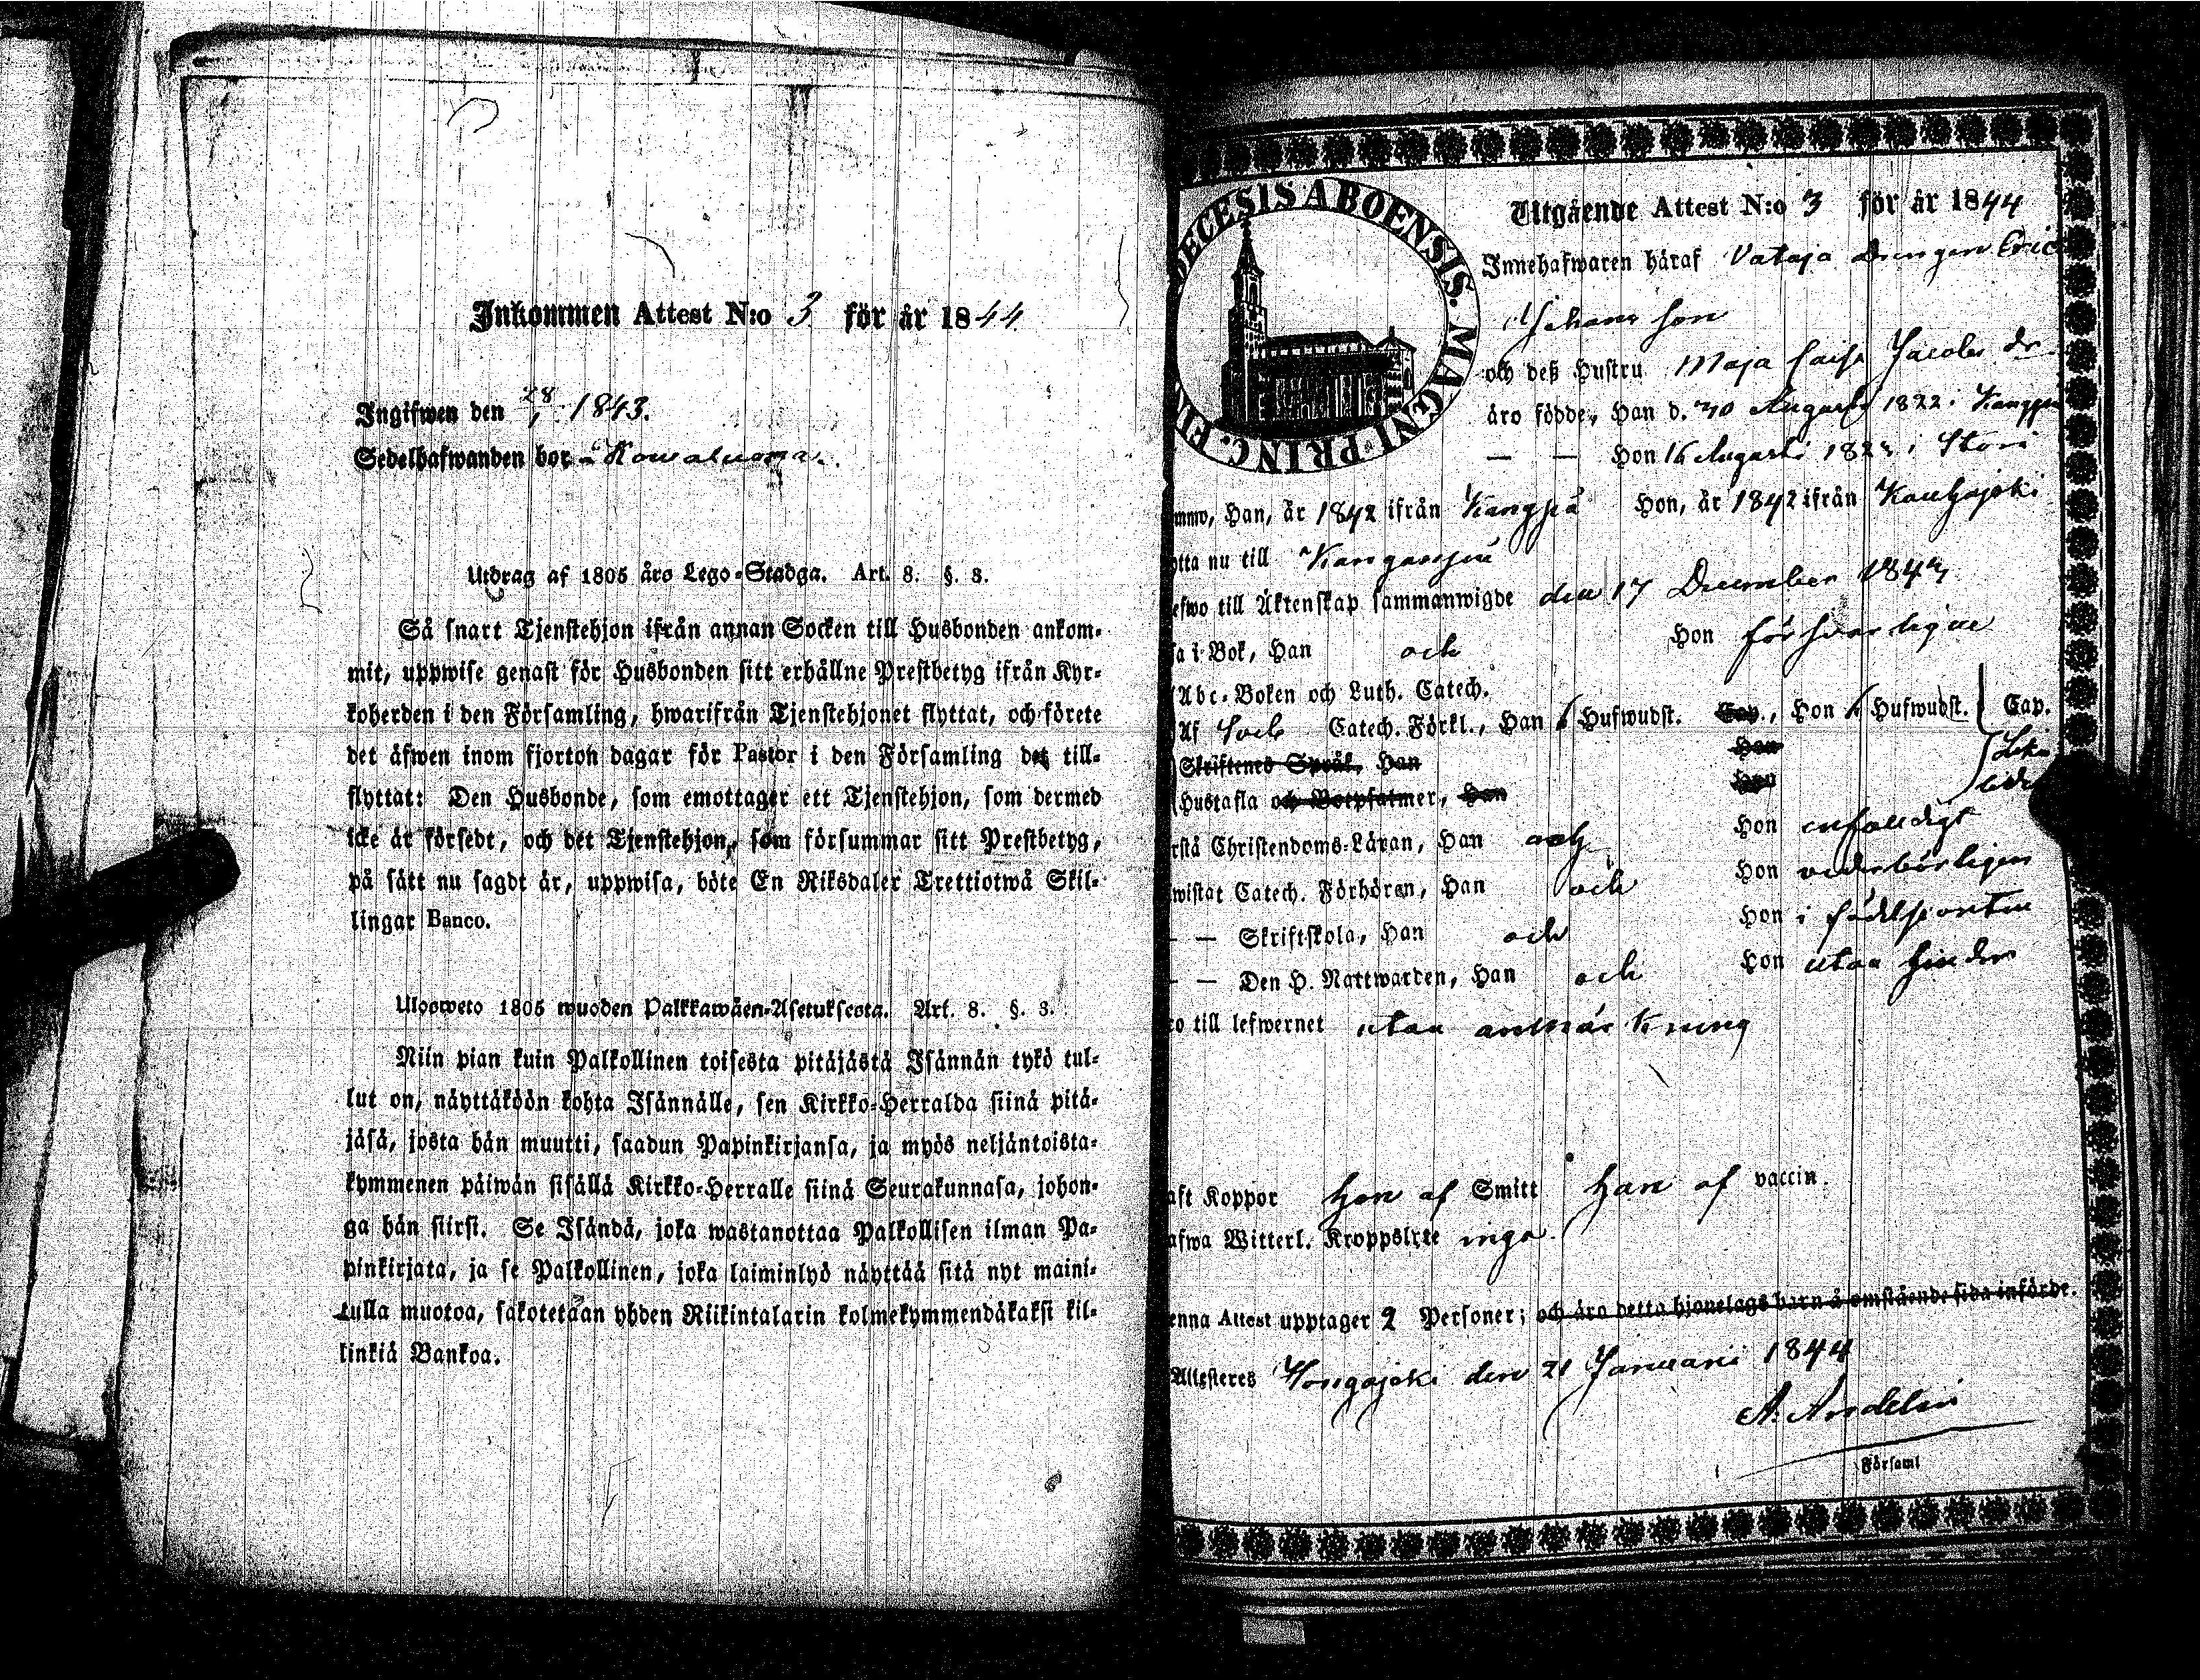 Inkommen Attest N:o 3 för år 1844
Ingifwen den 28/1 1843.
Sedelhafwanden bor
Utdrag af 1805 års Lego-Stadga. Art. 8. §. 3.
Så snart Tjenstehjon ifrån annan Socken till Husbonden ankom-
mit, uppwise genast för Husbonden sitt erhållne Prestbetyg ifrån Kyr-
koherden i den Församling, hwarifrån Tjenstehjonet flyttat, och förete
det äfwen inom fjorton dagar för Pastor i den Församling det till-
flyttat: Den Husbonde, som emottager ett Tjenstehjon, som dermed
icke är försedt, och det Tjenstehjon, som försummar sitt Prestbetyg,
på sätt nu sagdt är, uppwisa, böte En Riksdaler Trettiotwå Skil-
lingar Banco.
Ulosweto 1805 wuoden Palkkawäen-Asetuksesta. Art. 8. §. 3.
Niin pian kuin Palkollinen toisesta pitäjästä Isännän tykö tul-
lut on, näyttäköön kohta Isännälle, sen Kirkko-Herralda siinä pitä-
jäsä, josta hän muutti, saadun Papinkirjansa, ja myös neljäntoista-
kymmenen päiwän sisällä Kirkko-Herralle siinä Seurakunnasa, johon-
ga hän siirsi. Se Isändä, joka wastanottaa Palkollisen ilman Pa-
pinkirjata, ja se Palkollinen, joka laiminlyö näyttää sitä nyt maini-
tulla muotoa, sakotetaan yhden Riikintalarin kolmekymmendäkaksi kil-
linkiä Bankoa.
DECESIS ABOENSIS. MAGNI PRINC. FIN
Utgående Attest N:o 3 för år 1844
Innehafwaren häraf Vataja Drengen Eric
Johans son
och deß Hustru Maja Caisa Jacobs dr
äro födde, Han d. 30 Augusti 1822 i
— — Hon 16 Augusti i Storå
mmo, Han, år 1842 ifrån Kangsiå Hon, år 1842 ifrån Kauhajoki
otta nu till
efwo till Äktenskap sammanwigde den 17 December 1843
sa i Bok, Han och Hon förswarligen
Abc-Boken och Luth. Catech.
Af Sveb Catech. Förkl., Han 6 Hufwudst. Cap., Hon 6 Hufwudst. Cap.
Skriftenes Språk, Han Hon
Hustafla och Botpsalmer, Han Hon
rstå Christendoms-Läran, Han och Hon enfaldigt
wistat Catech. Förhören, Han och Hon vederbörligen
— — Skriftskola, Han och Hon i födelseorten
— — Den H. Nattwarden, Han och Hon utan hinder
ro till lefwernet utan anmärkning
aft Koppor hon af Smitt han af vaccin.
afwa Witterl. Kroppslyte inga.
enna Attest upptager 2 Personer; och äro detta hjonelags barn å omstående sida införde.
Attesteres Hongojoki den 21 Januari 1844
A. Andelin
Församl